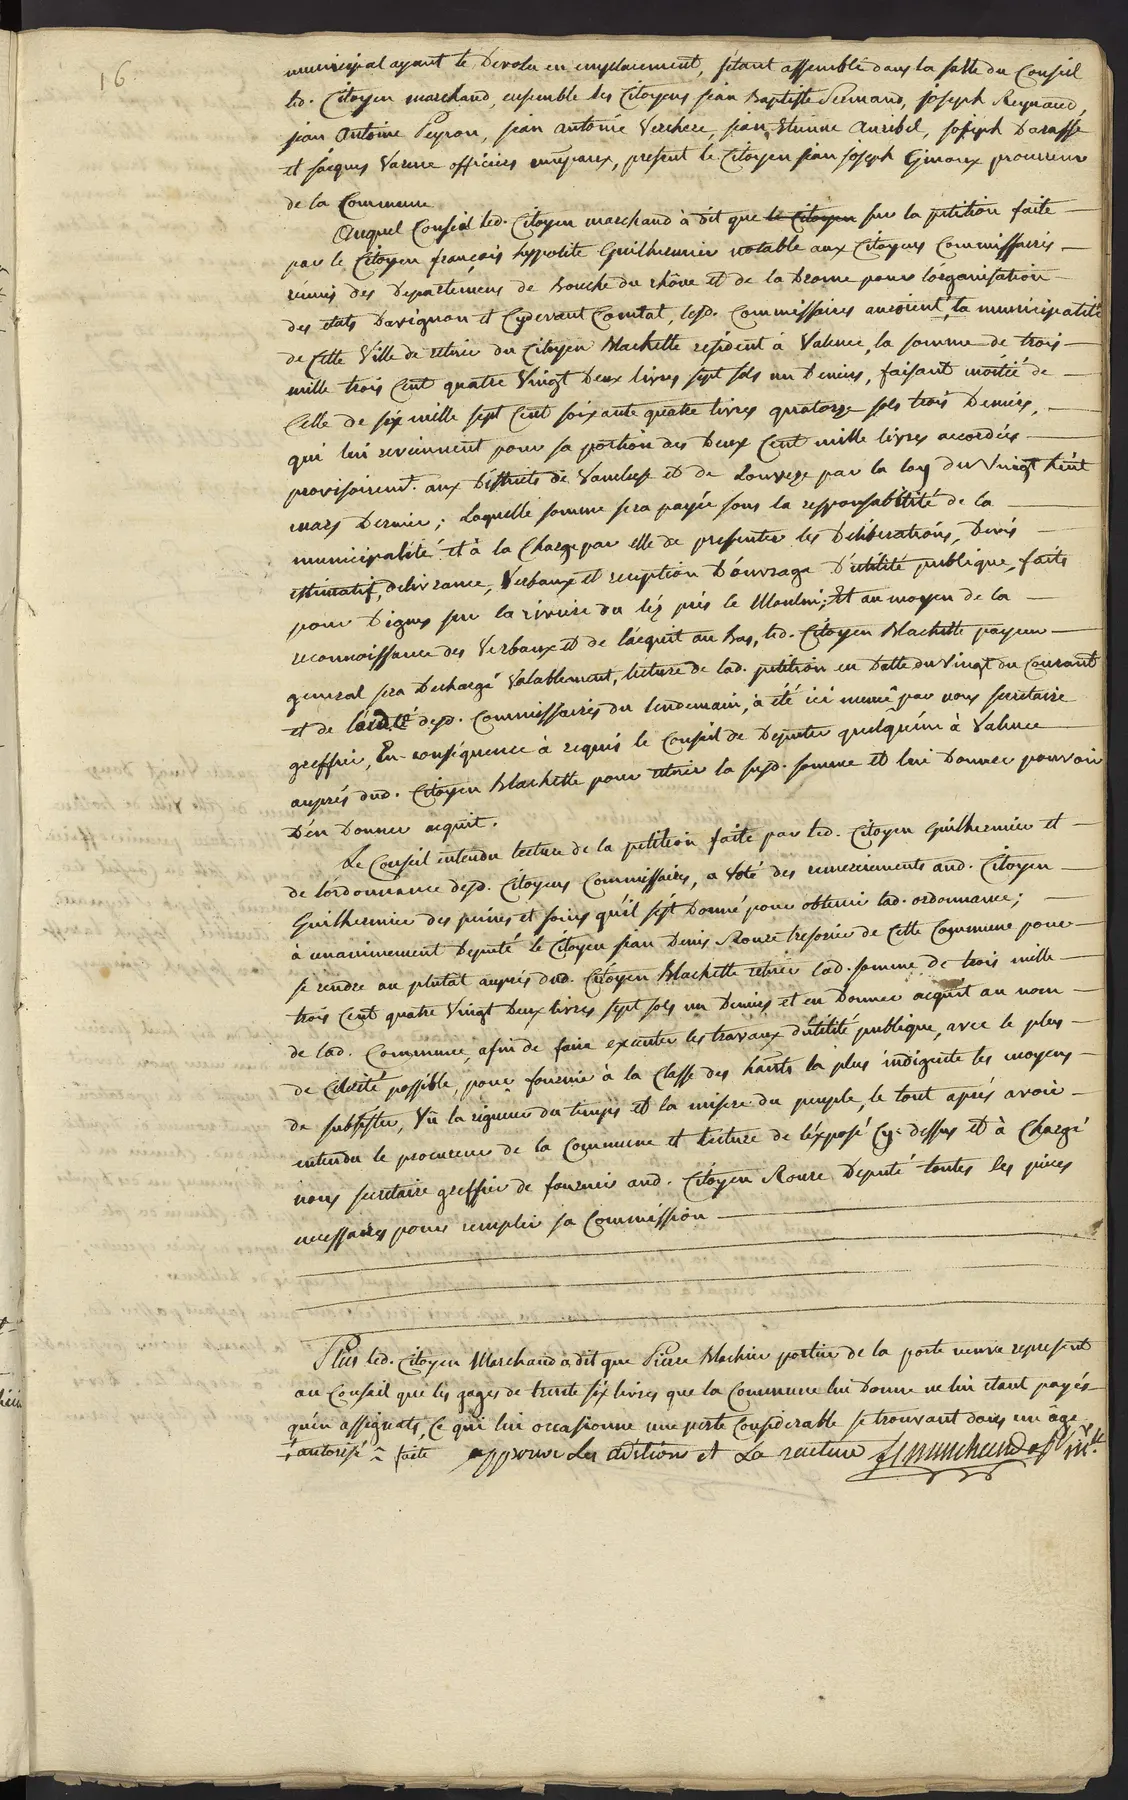 16
municipal ayant le Devolu en emplacement, s'étant assemblé dans la salle du Conseil
led. Citoyen marchand, ensemble les Citoyens jean Baptiste Sernand, joseph Reynaud,
jean Antoine Peyron, jean antoine Verchere, jean Etienne Auribel, joseph Darasse
et jacques Varene officiers mpaux, present le Citoyen jean joseph Giroux procureur
de la Commune
Auquel Conseil led. Citoyen marchand à dit que le Citoyen sur la petition faite
par le Citoyen françois hyppolite Guilhermier notable aux Citoyens Commissaires
réunis des departemens de Bouche du rhône et de la Drome pour l'organisation
des etats D'avignon et Cydevant Comtat, lesd. Commissaires auroient + la municipalité
de Cette Ville de retirer du Citoyen Blachette resident à Valence, la somme de trois
mille trois Cent quatre Vingt Deux livres sept sols un Deniers, faisant moitié de
Celle de six mille sept Cent soixante quatre livres quatorze sols trois Deniers,
qui lui reviennent pour sa portion des Deux Cent mille livres accordées
provisoiremt. aux Districts de Vaucluse et de Louveze par la loy du Vingt huit
mars Dernier; Laquelle somme sera payée sous la responsabilité de la
municipalité et à la Charge par elle de presenter les Deliberations, Devis
estimatif, delivrance, Verbaux et reception D'ouvrage D'utilité publique, faits
pour Digues sur la riviere du léz prés le Moulin; Et au moyen de la
reconnoissance des Verbaux et de l'acquit au Bas, led. Citoyen Blachette payeur
general sera Dechargé Valablement, lecture de lad. petition en Datte du Vingt du Courant
et de l'arrêté desd. Commissaires du lendemain, à été ici meme ^ par nous secretaire
greffier, En conséquence à requis le Conseil de Deputer quelqu'un à Valence
auprés dud. Citoyen Blachette pour retirer la susd. somme et lui Donner pouvoir
D'en Donner acquit.
Le Conseil entendu lecture de la petition faite par led. Citoyen Guilhermier et
de l'ordonnance desd. Citoyens Commissaires, a Voté des remerciements aud. Citoyen
Guilhermier des peines et soins qu'il s'est Donné pour obtenir lad. ordonnance;
à unanimement Deputé le Citoyen jean Denis Roure tresorier de Cette Commune pour
se rendre au plutat auprés dud. Citoyen Blachette retirer lad. somme de trois mille
trois Cent quatre Vingt Deux livres sept sols un Deniers et en Donner acquit au nom
de lad. Commune, afin de faire executer les travaux d'utilité publique, avec le plus
de Célérité possible, pour fournir à la Classe des hants la plus indigente les moyens
de subsister, Vû la rigueur du temps et la misere du peuple, le tout aprés avoir
entendu le procureur de la Commune et lecture de l'éxposé Cy-dessus et à Chargé
nous secretaire greffier de fournir aud. Citoyen Roure Deputé toutes les pièces
necessaires pour remplir sa Commission
Plus led. Citoyen Marchand a dit que Pierre Blachier portier de la porte neuve represent
au Conseil que les gages de trente six livres que la Commune lui Donne ne lui etant payés
qu'en assignats, Ce qui lui occasionne une perte Considerable se trouvant dans un âge
+ autorisé ^ faite approuve Les aditions et La rature f marchand